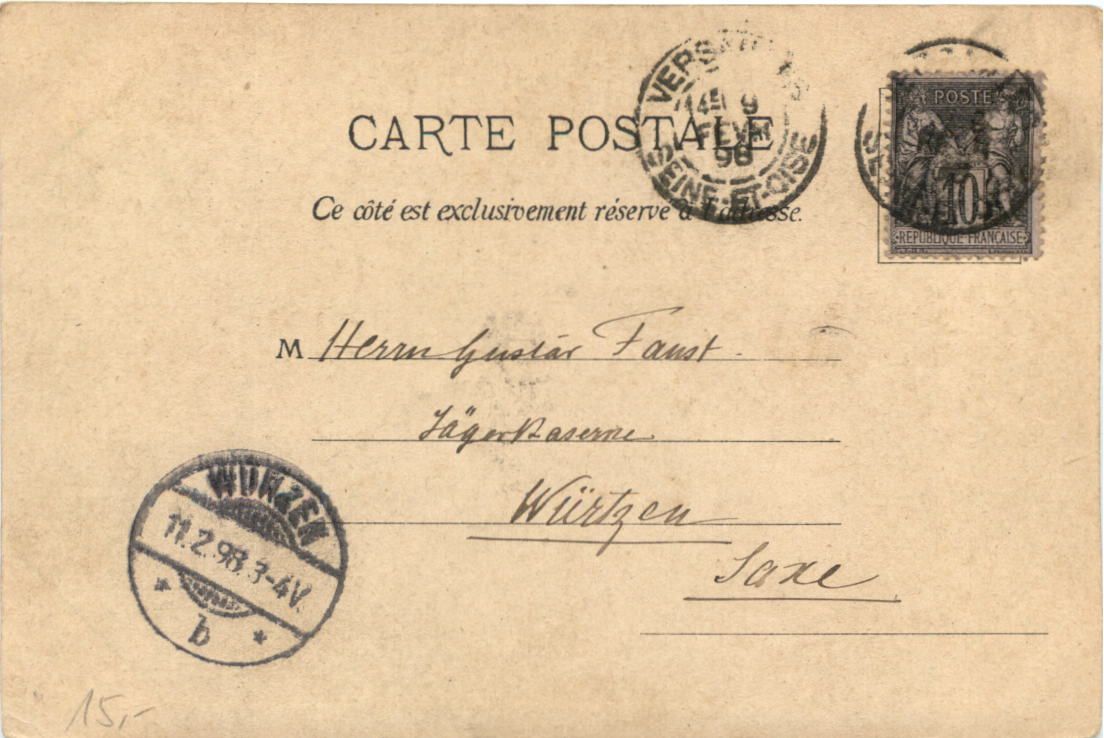 CARTE POSTALE
Ce côté est exclusivement réservé à l'adresse.
VERSAILLES
4E 9
FEVR
98
SEINE-ET-OISE
POSTE
10
REPUBLIQUE FRANÇAISE
M Herrn Gustav Faust.
Jägerkaserne
Würtzen
Saxe
WURZEN
11.2.98.3-4V.
* b *
15,-